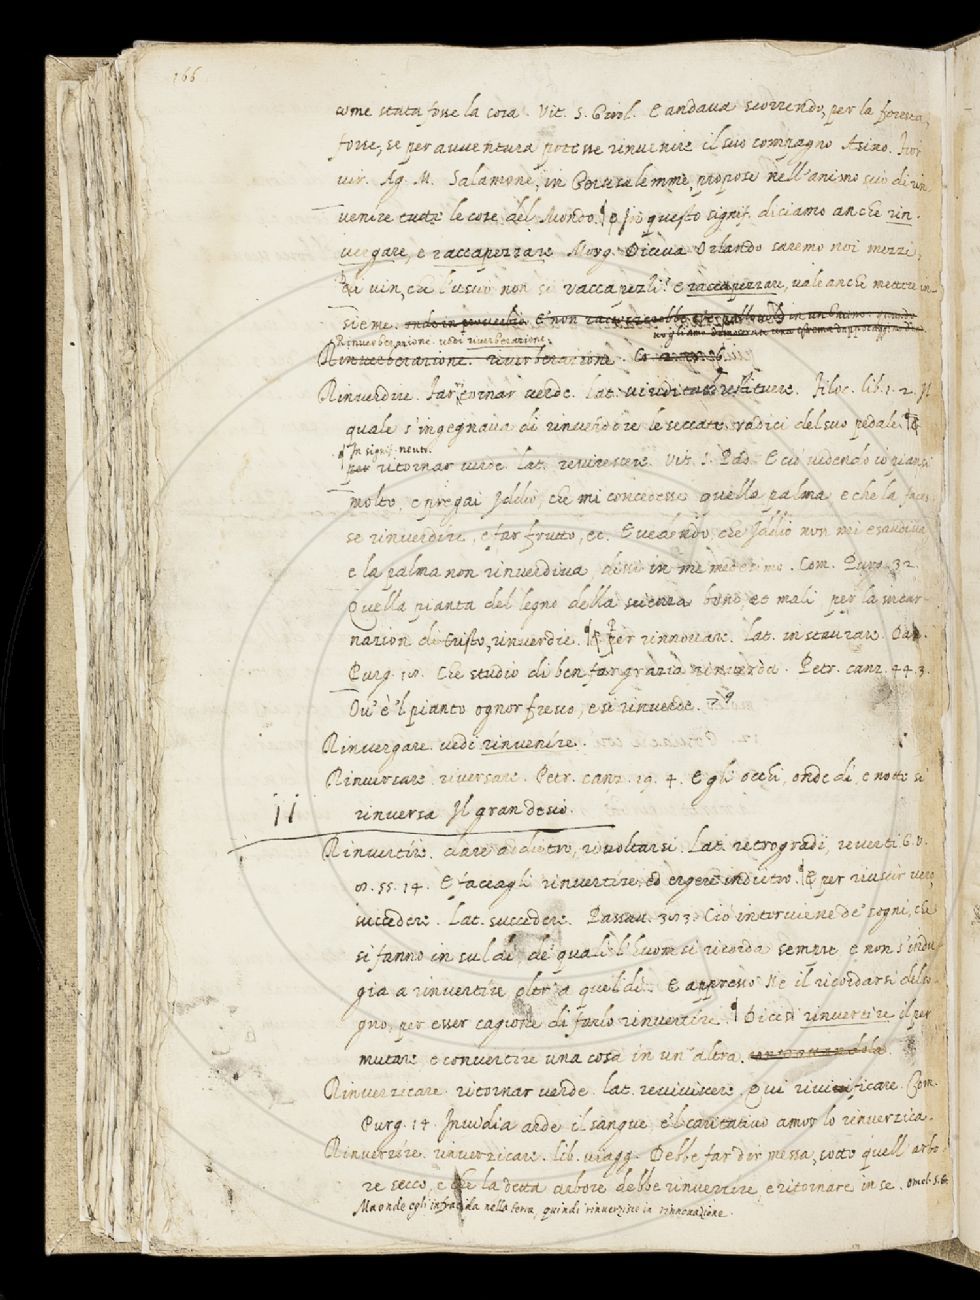 166
come stata fosse la cosa. Vit. S. Girol. E andava scorrendo, per la foresta,
forse, se per avventura potesse rinvenire il suo compagno Asino. Fior
vir. Ag. M. Salamone, in Gerusalemme, propose nell'animo suo di rin
venire tutte le cose del Mondo. questo signif. diciamo anche rin-
vergare, e raccapezzare Morg. Diceva Orlando saremo noi mezzi,
Di vin, che l'usuio non si raccapezzi! e raccapezzare, vale anche mettere in-
sieme.
Rinverberazione. vedi riverberazione.
Rinverberazione. riverberazione.
Rinverdire. Far tornar verde. Lat. restituere. Filoc. lib. 1. 2. Il
quale s'ingegnava di rinverdire le seccate radici del suo pedale.
In signif. neutr.
per ritornar verde. Lat. revirescere. Vit. S. Pad. E cio vedendo io piansi
molto, e pregai Iddio, che mi concedesse quella palma e che la faces
se rinverdire, e far frutto, ec. E veando, che Iddio non mi esaudiva
e la palma non rinverdiva, dissi in me medesimo. Com. Purg. 32.
Quella pianta del legno della scienza bono, et mali per la incar-
nazion di Cristo, rinverdie. per rinnovare. Lat. instaurare. Dan.
Purg. 18. Che studio di ben far grazia rinverda. Petr. canz. 44. 3.
Ov' è 'l pianto ognor fresco, e si rinverde.
Rinvergare. vedi rinvenire.
Rinversare. riversare. Petr. canz. 19. 4. E gli occhi, onde di, e notte si
rinversa Il gran desio.
11
Rinvertire. dare addietro, rivoltarsi. Lat. retrogradi, reverti G. V.
8. 55. 14. E faceagli rinvertire, ed ergere indietro. E per riuscir vero,
succedere. Lat. succedere. Passav. 303. Ciò interviene de' sogni, che
si fanno in sul dì, de' quali l'huom si ricorda sempre e non s'indu-
gia a rinvertire oltr' a quel dì. E appresso Se il ricordarsi del so-
gno, per esser cagione di farlo rinvertire. Dicesi rinvertire il per
mutare, e convertire una cosa in un' altra.
Rinverzicare. ritornar verde. lat. revivivere. Qui rivificare. Com.
Purg. 14 Invidia arde il sangue, e 'l caritativo amor lo rinverzica.
Rinverzire. rinverzicare. lib. viagg. Debbe far dir messa, sotto quell' arbo-
re secco, e che la detta arbore debbe rinverzire, e ritornare in se. omel. S. G.
Ma onde egli infracida nella terra, quindi rinverzisce in rinnovazione.